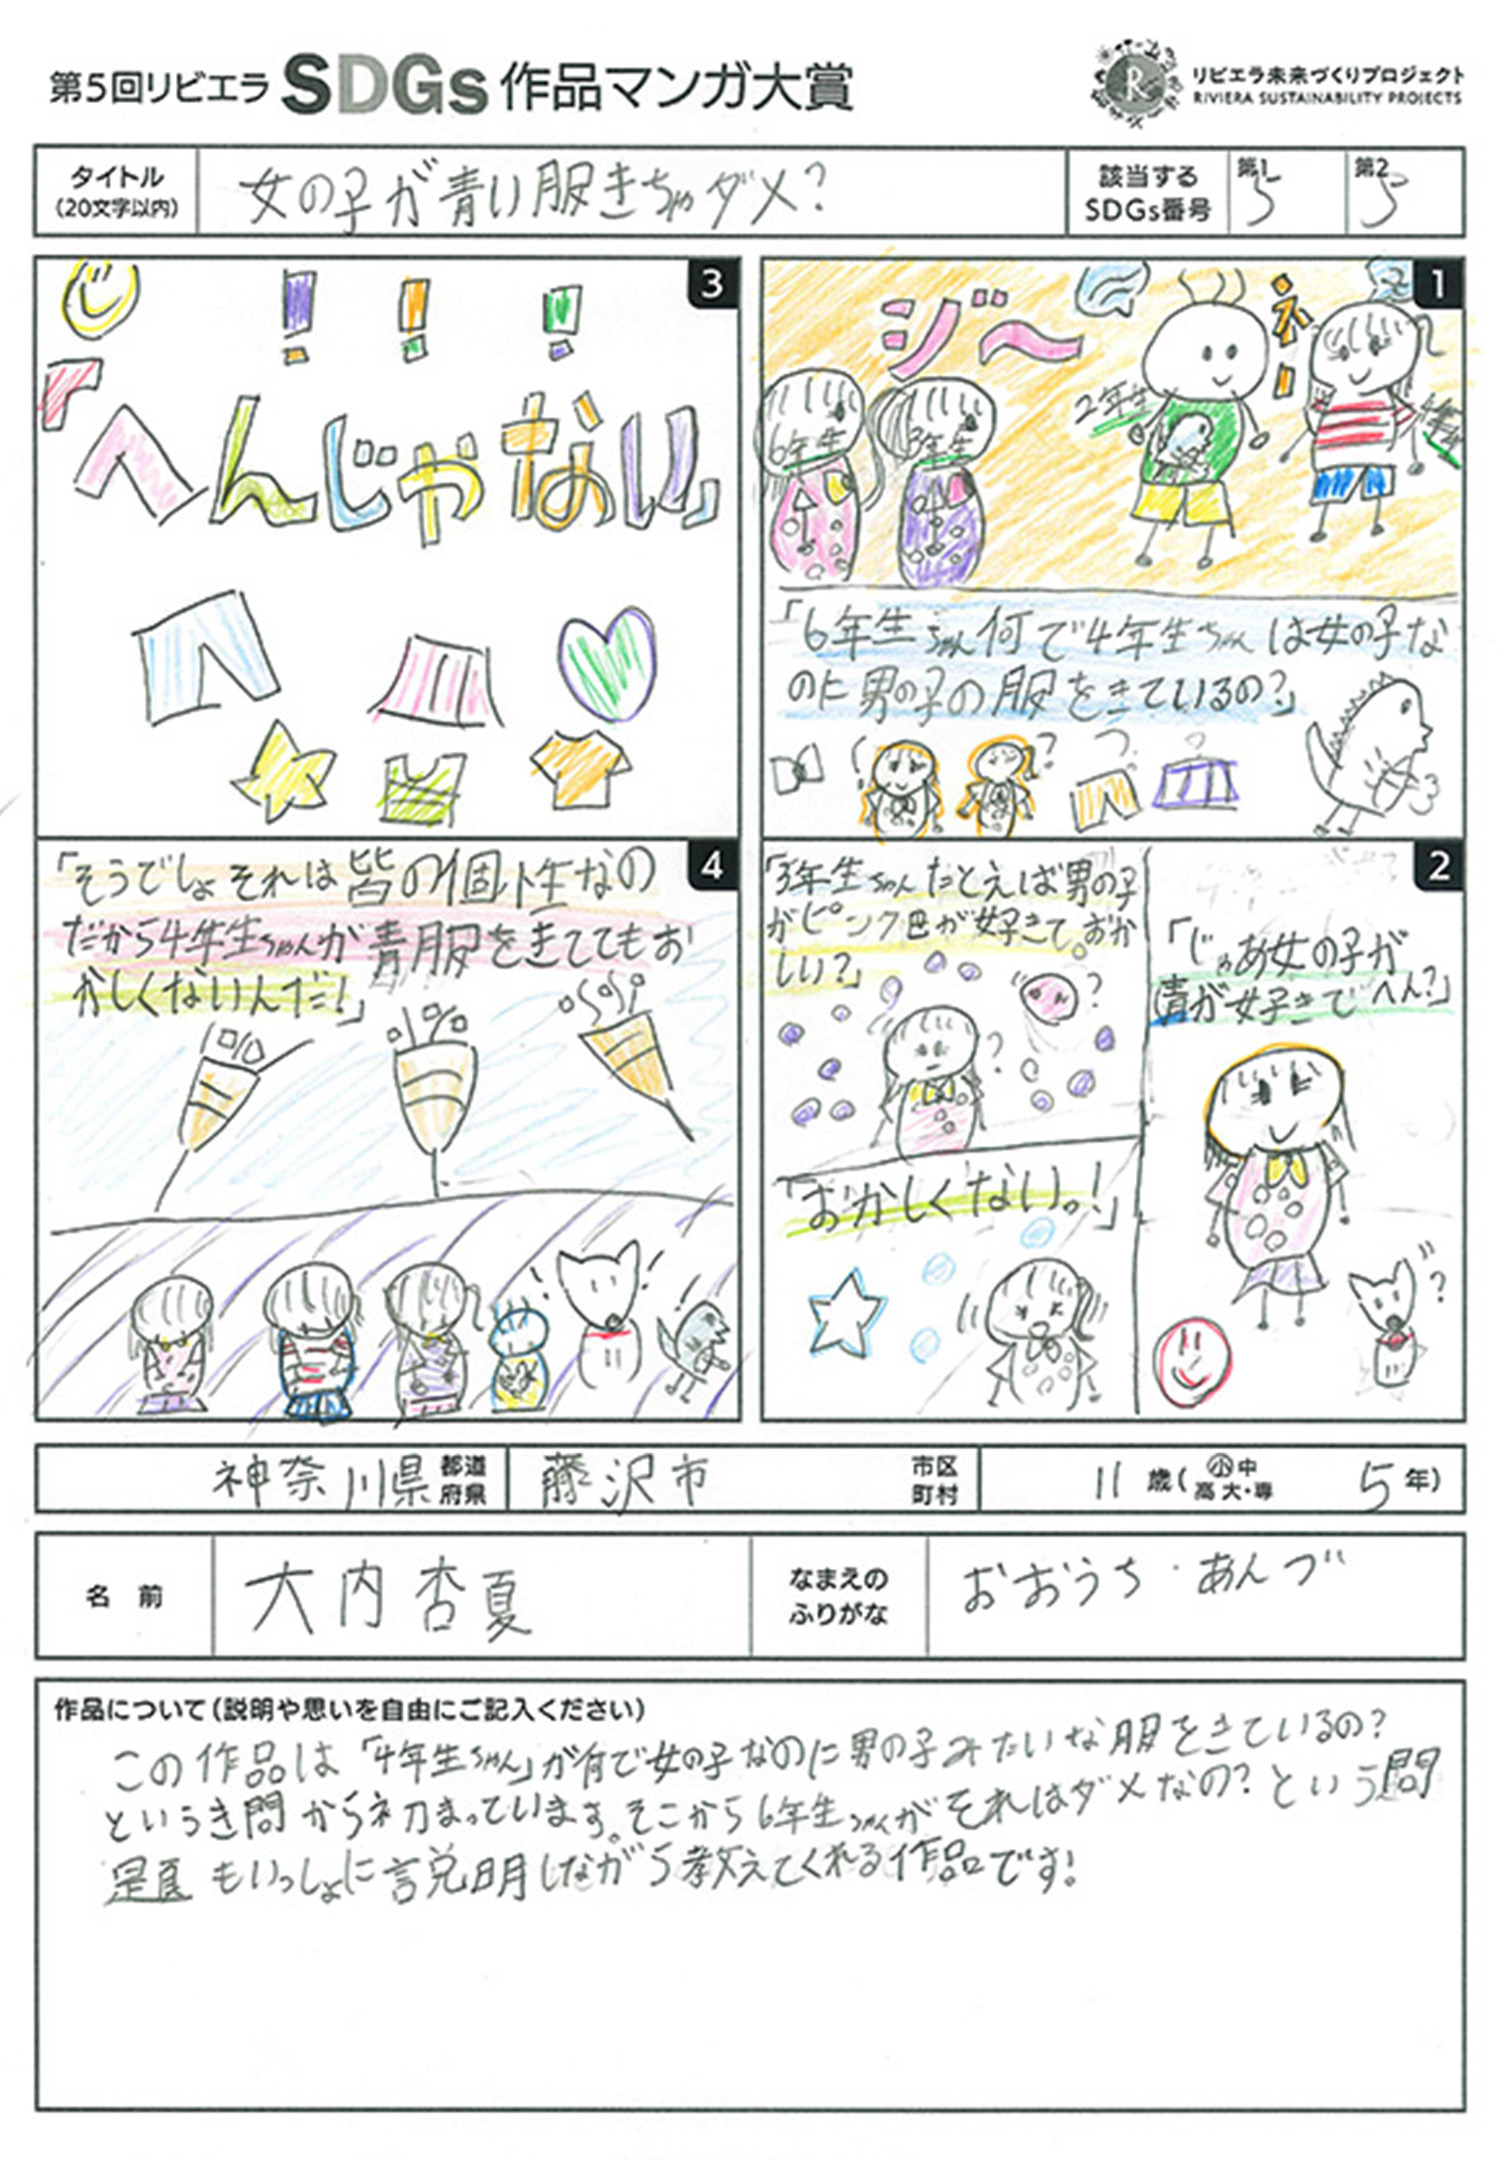 第5回リビエラ SDGs 作品マンガ大賞
リビエラ未来づくりプロジェクト
RIVIERA SUSTAINABILITY PROJECTS
タイトル
(20文字以内)
女の子が青い服きちゃダメ?
該当する
SDGs番号
第1
5
第2
5
1
ジ〜
ネー
6年生
3年生
2年生
4年生
「6年生ちゃん何で4年生ちゃんは女の子な
のに男の子の服をきているの?」
2
「3年生ちゃんたとえば男の子
がピンク色が好きで。おか
しい?」
「おかしくない。!」
「じゃあ女の子が
青が好きでへん?」
3
!!!
「へんじゃない」
4
「そうでしょそれは皆の個性なの
だから4年生ちゃんが青服をきててもお
かしくないんだ!」
神奈川県
都道
府県
藤沢市
市区
町村
11歳(小中
高大・専
5年)
名前
大内杏夏
なまえの
ふりがな
おおうち・あんづ
作品について(説明や思いを自由にご記入ください)
この作品は「4年生ちゃん」が何で女の子なのに男の子みたいな服をきているの?
というき問から初まっています。そこから6年生ちゃんがそれはダメなの?という問
題もいっしょに説明しながら教えてくれる作品です!